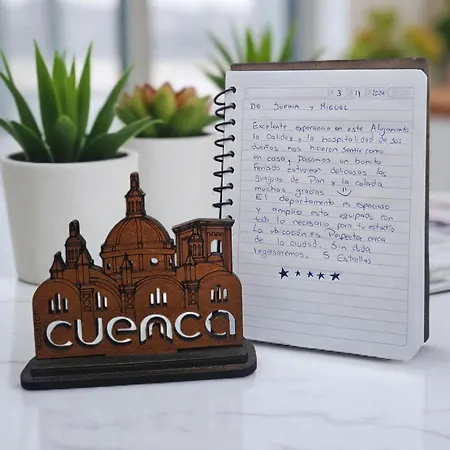 cuenca
3 11 2024
De: Sofria y Miguel
Excelente experiencia en este Alojamiento
la Calidez y la hospitalidad de sus
dueños nos hicieron sentir como
en casa, Pasamos un bonito
Feriado estuvieron deliciosas las
guaguas de Pan y la colada
muchas gracias
El departamento es espacioso
y amplio esta equipado con
todo lo necesario para tu estadia
La ubicación es Perfecta cerca
de la ciudad. Sin duda
regresaremos. 5 Estrellas